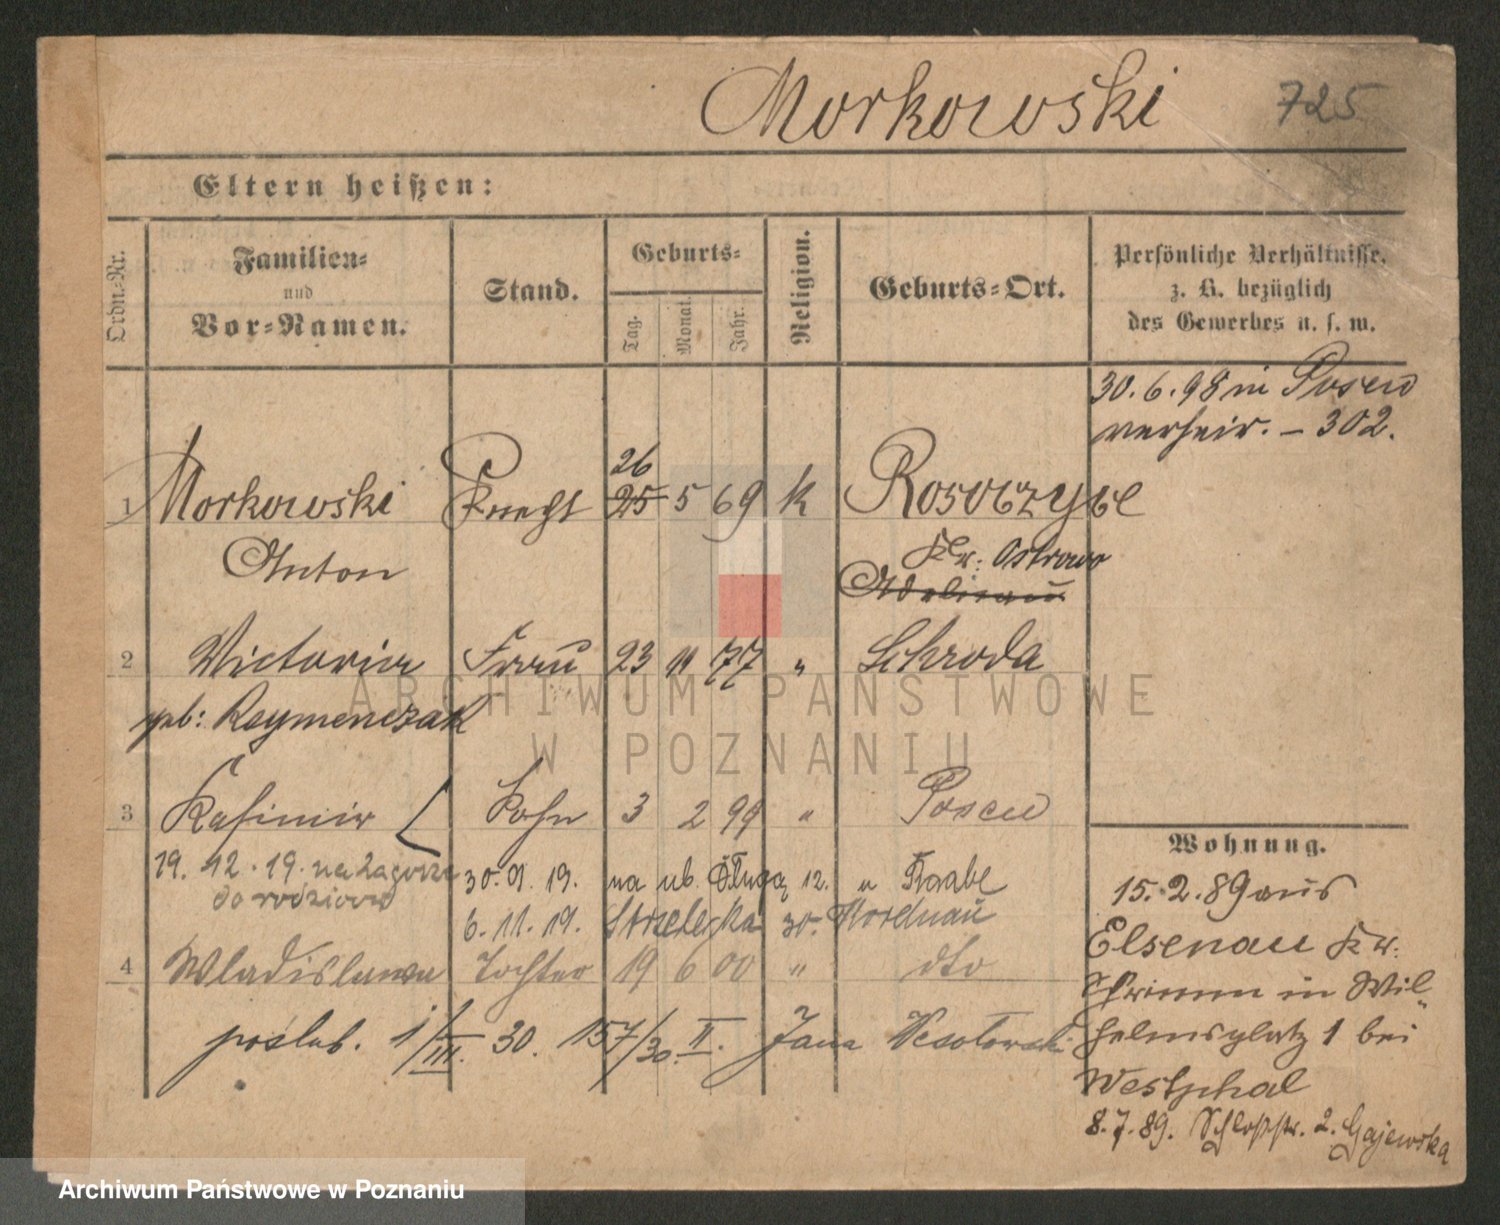 Morkowski 725
Eltern heißen:
Ordn.-Nr.
Familien-
und
Vor-Namen.
Stand.
Geburts-
Tag.
Monat.
Jahr.
Religion.
Geburts-Ort.
Persönliche Verhältnisse,
z. B. bezüglich
des Gewerbes u. s. w.
30.6.98 in Posen
verheir. – 302.
26
1 Morkowski Knecht 25 5 69 k Rosoczyce
Anton Kr: Ostrowo
2 Victoria Frau 23 11 77 " Schroda
geb:
3 Kasimir Sohn 3 2 99 " Posen
19. 12. 19. na Zagórze 30. 9. 19. na ub. Długą 12.
do rodziców 6. 11. 19. Strzelecka 30.
4 Wladislawa Tochter 19 6 00 " dto
poślub. 1/III. 30. 157/30. II. Jana
Wohnung.
15.2.89 aus
Elsenau Kr:
Schrimm in Wil-
helmsplatz 1 bei
Westphal
8.7.89. Schloßstr. 2. Gajewska
ARCHIWUM PAŃSTWOWE
W POZNANIU
Archiwum Państwowe w Poznaniu